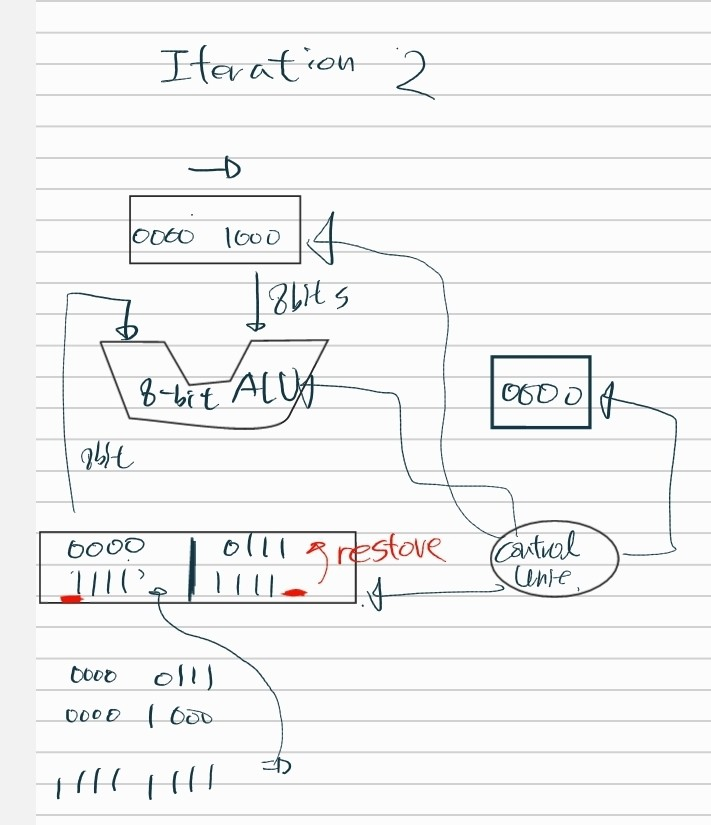 Iteration 2
0000 1000
8bits
8-bit ALU
0000
8bit
0000 0111 restore
1111 1111
Control
Unite.
0000 0111
0000 1000
1111 1111